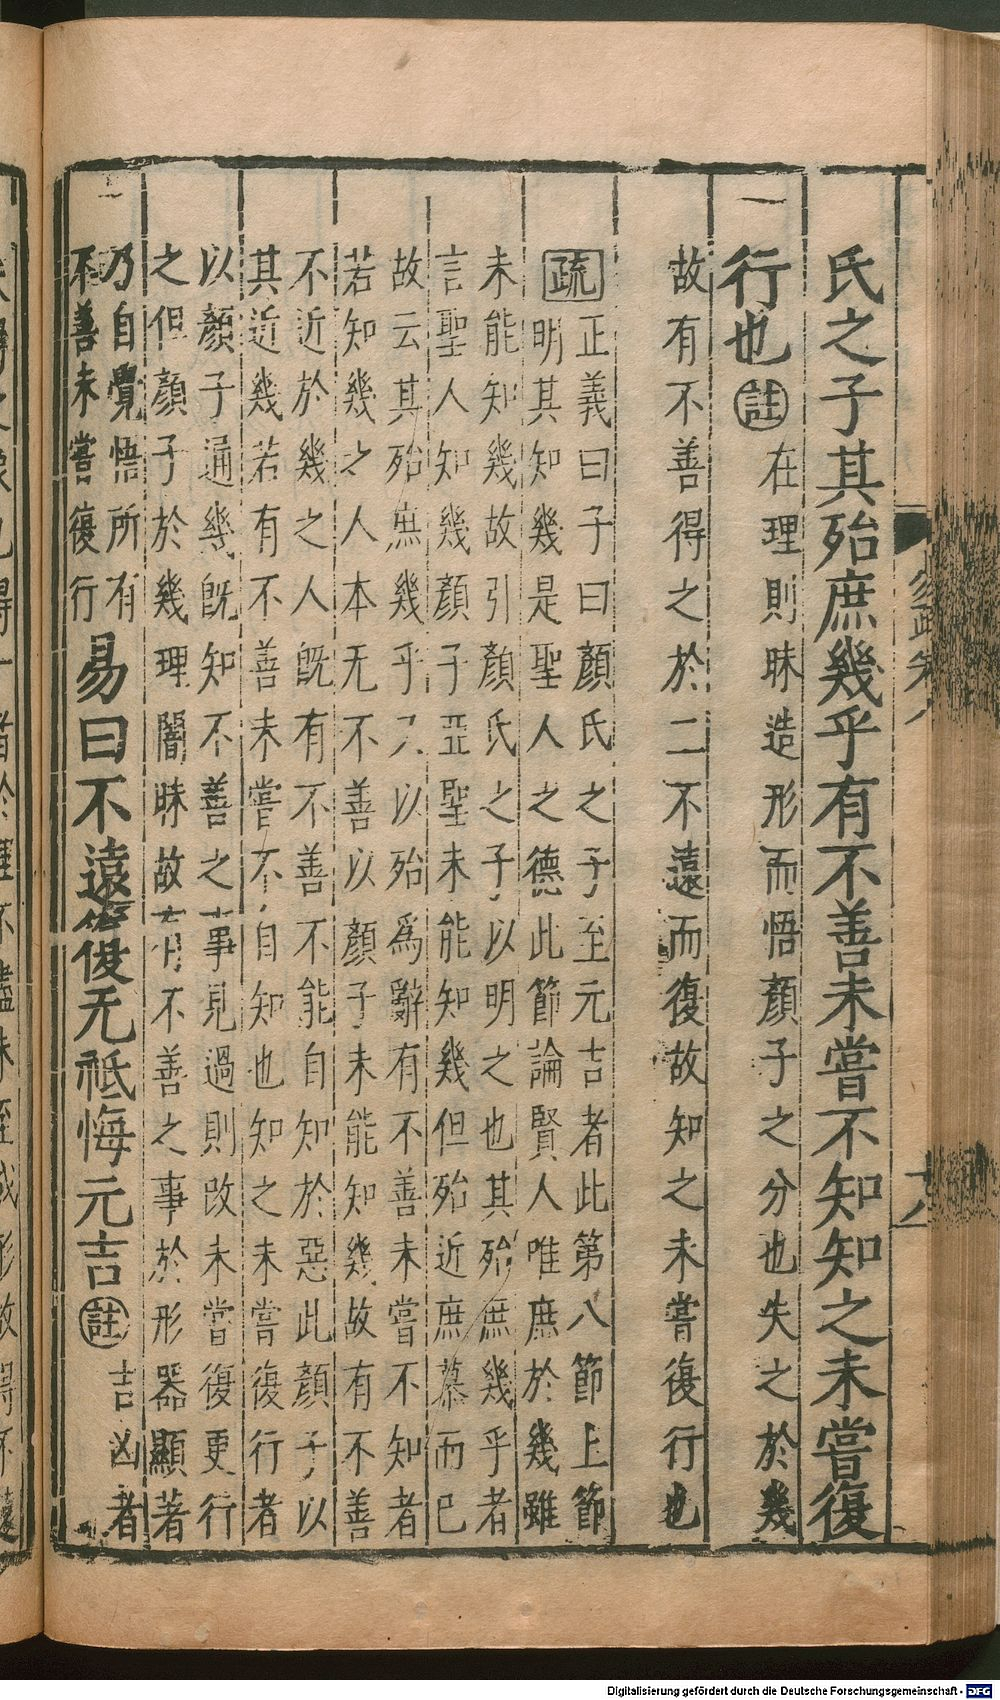 氏之子其殆庶幾乎有不善未嘗不知知之未嘗復
行也註在理則昧造形而悟顏子之分也失之於幾
故有不善得之於二不遠而復故知之未嘗復行也
疏正義曰子曰顏氏之子至元吉者此第八節上節
明其知幾是聖人之德此節論賢人唯庶於幾雖
未能知幾故引顏氏之子以明之也其殆庶幾乎者
言聖人知幾顏子亞聖未能知幾但殆近庶慕而已
故云其殆庶幾乎又以殆為辭有不善未嘗不知者
若知幾之人本无不善以顏子未能知幾故有不善
不近於幾之人既有不善不能自知於惡此顏子以
其近幾若有不善未嘗不自知也知之未嘗復行者
以顏子通幾既知不善之事見過則改未嘗復更行
之但顏子於幾理闇昧故有不善之事於形器顯著
乃自覺悟所有
不善未嘗復行
易曰不遠復无祗悔元吉註吉凶者
易疏卷八
十八
Digitalisierung gefördert durch die Deutsche Forschungsgemeinschaft - DFG